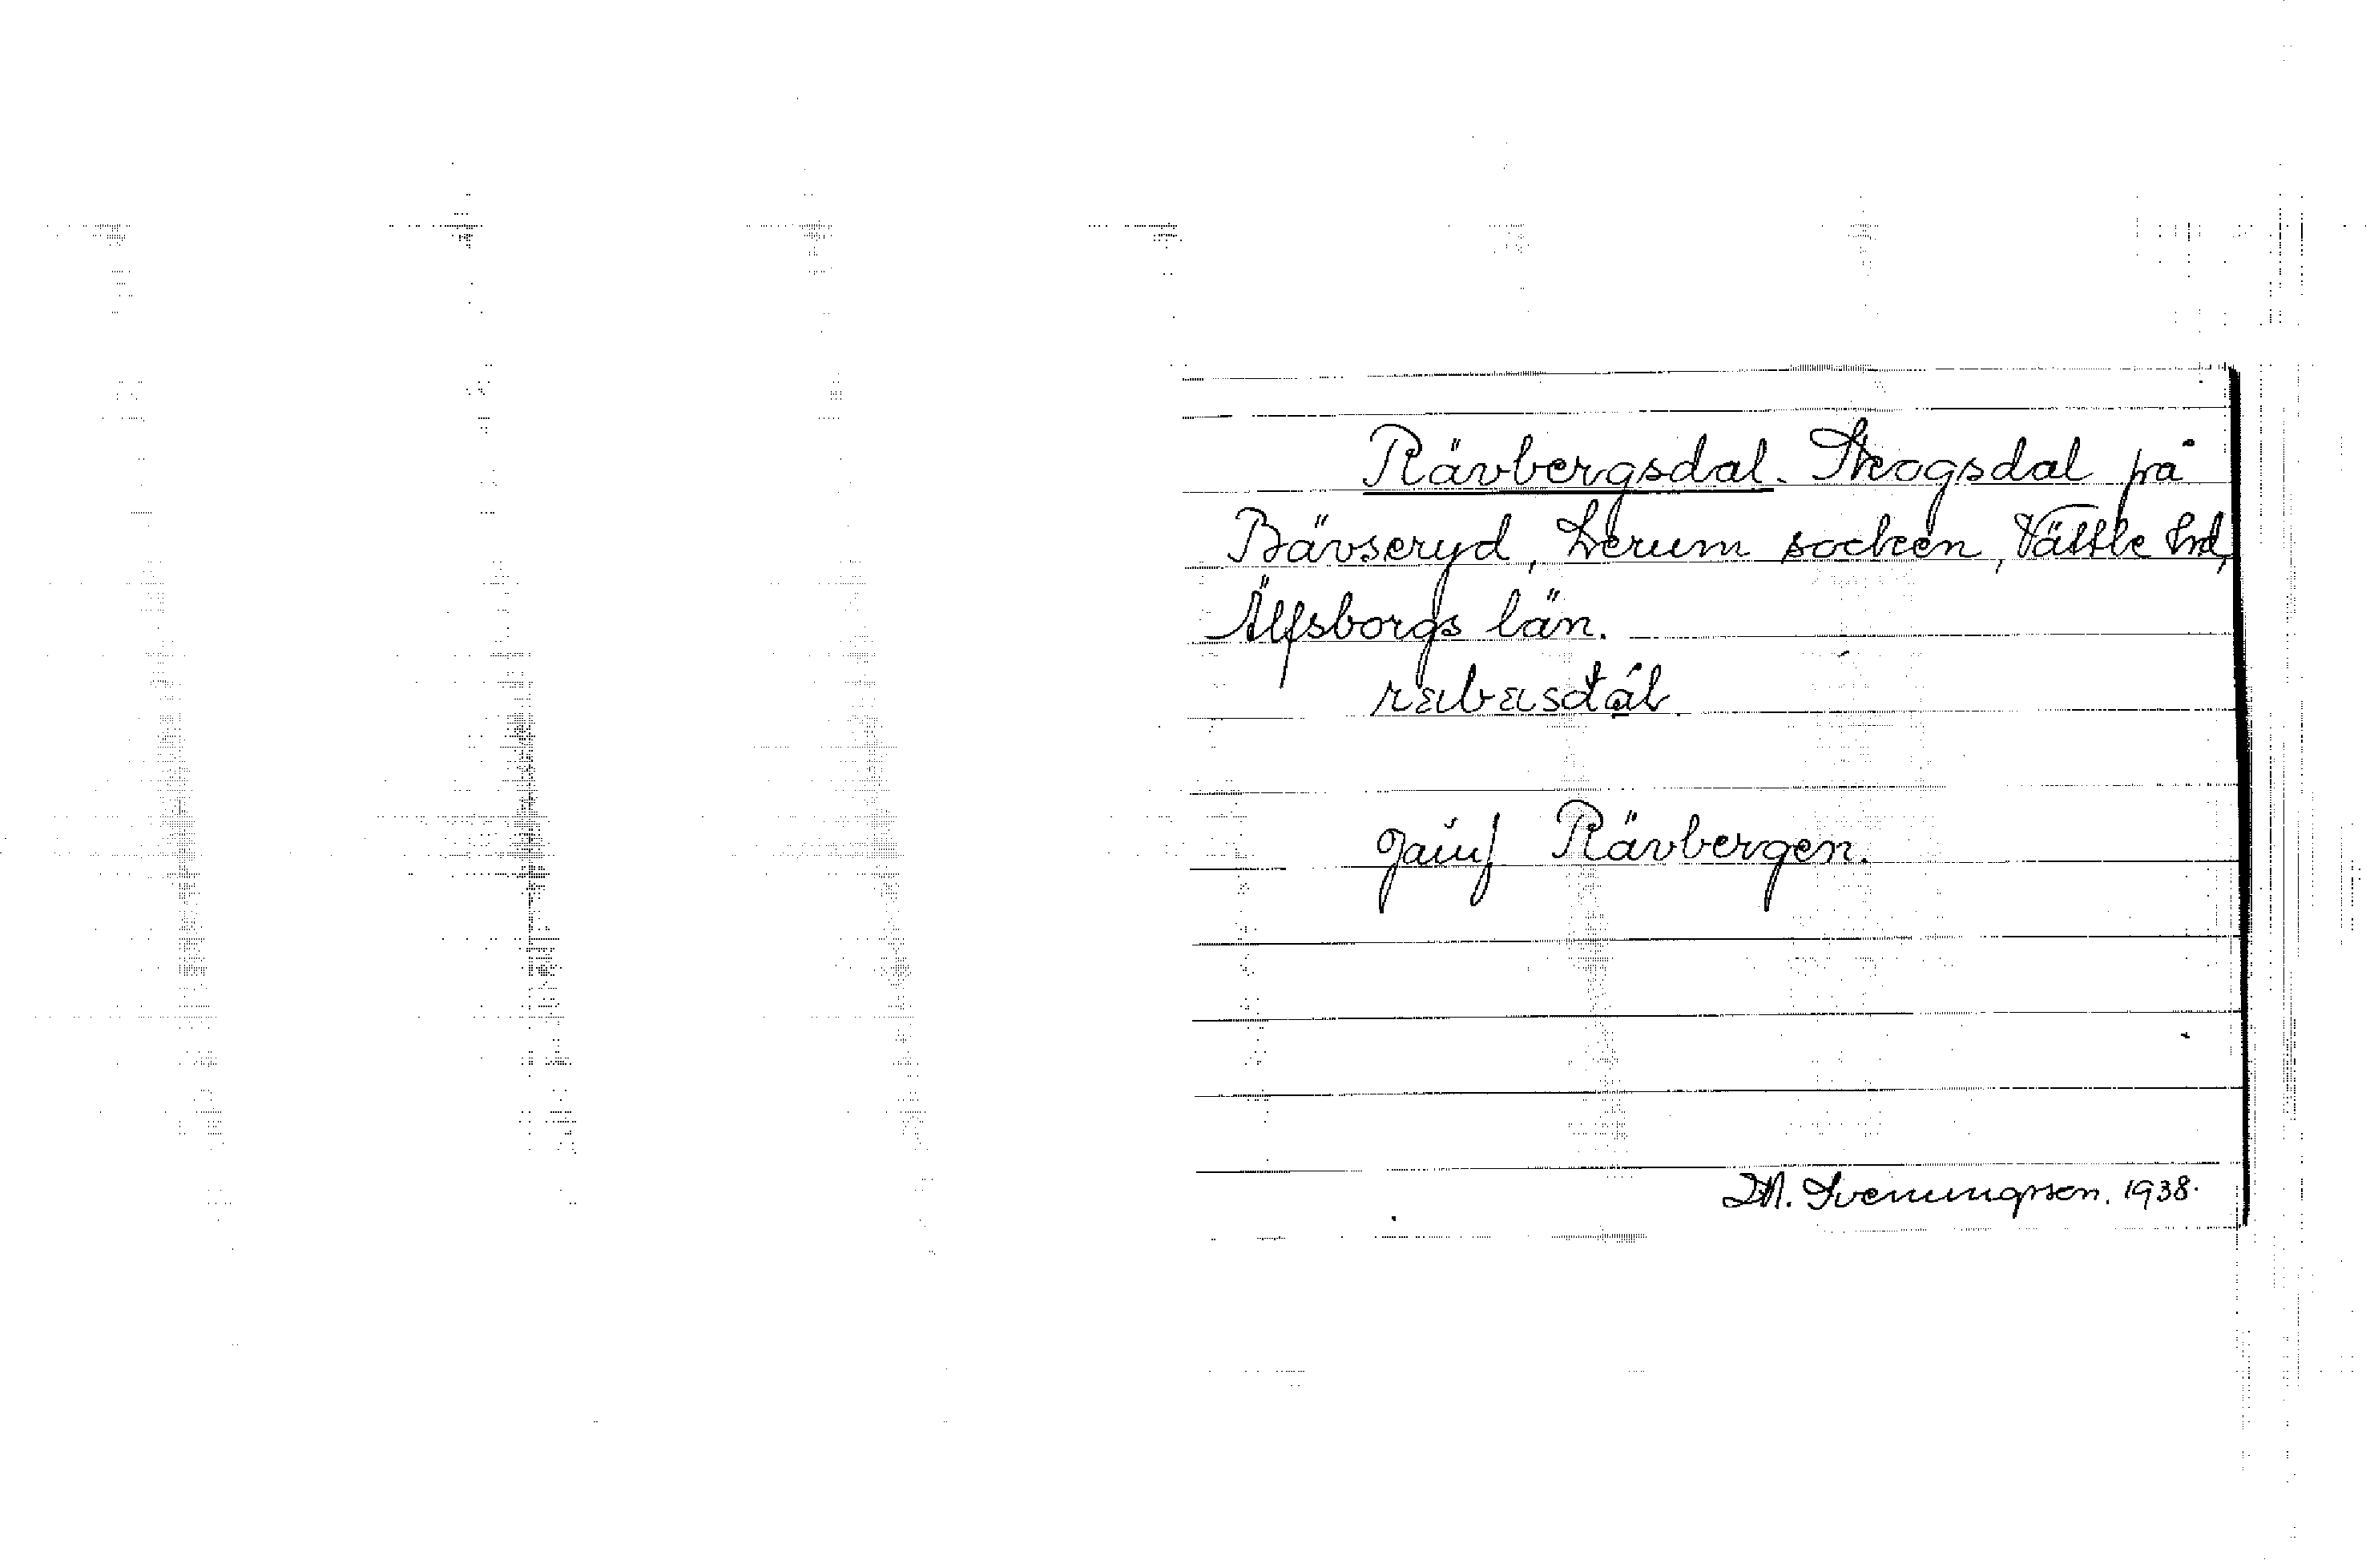 Rävbergsdal. Skogsdal på
Bävseryd, Lerum socken, Vättle hd,
Älfsborgs län.
Jämf Rävbergen.
M. Sveningsson. 1938.